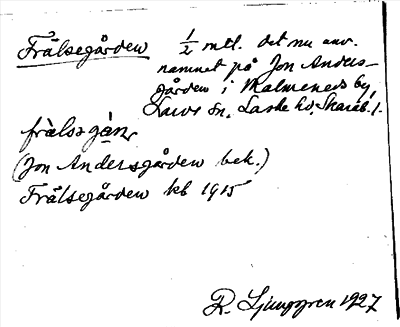 Frälsegården 1/2 mtl. det nu anv.
namnet på Jon Anders-
gården i Malmeneds by,
Larvs sn, Laske hd, Skarab. l.
frälsagån
(Jon Andersgården bek.)
Frälsegården kb 1915
R. Ljunggren 1927